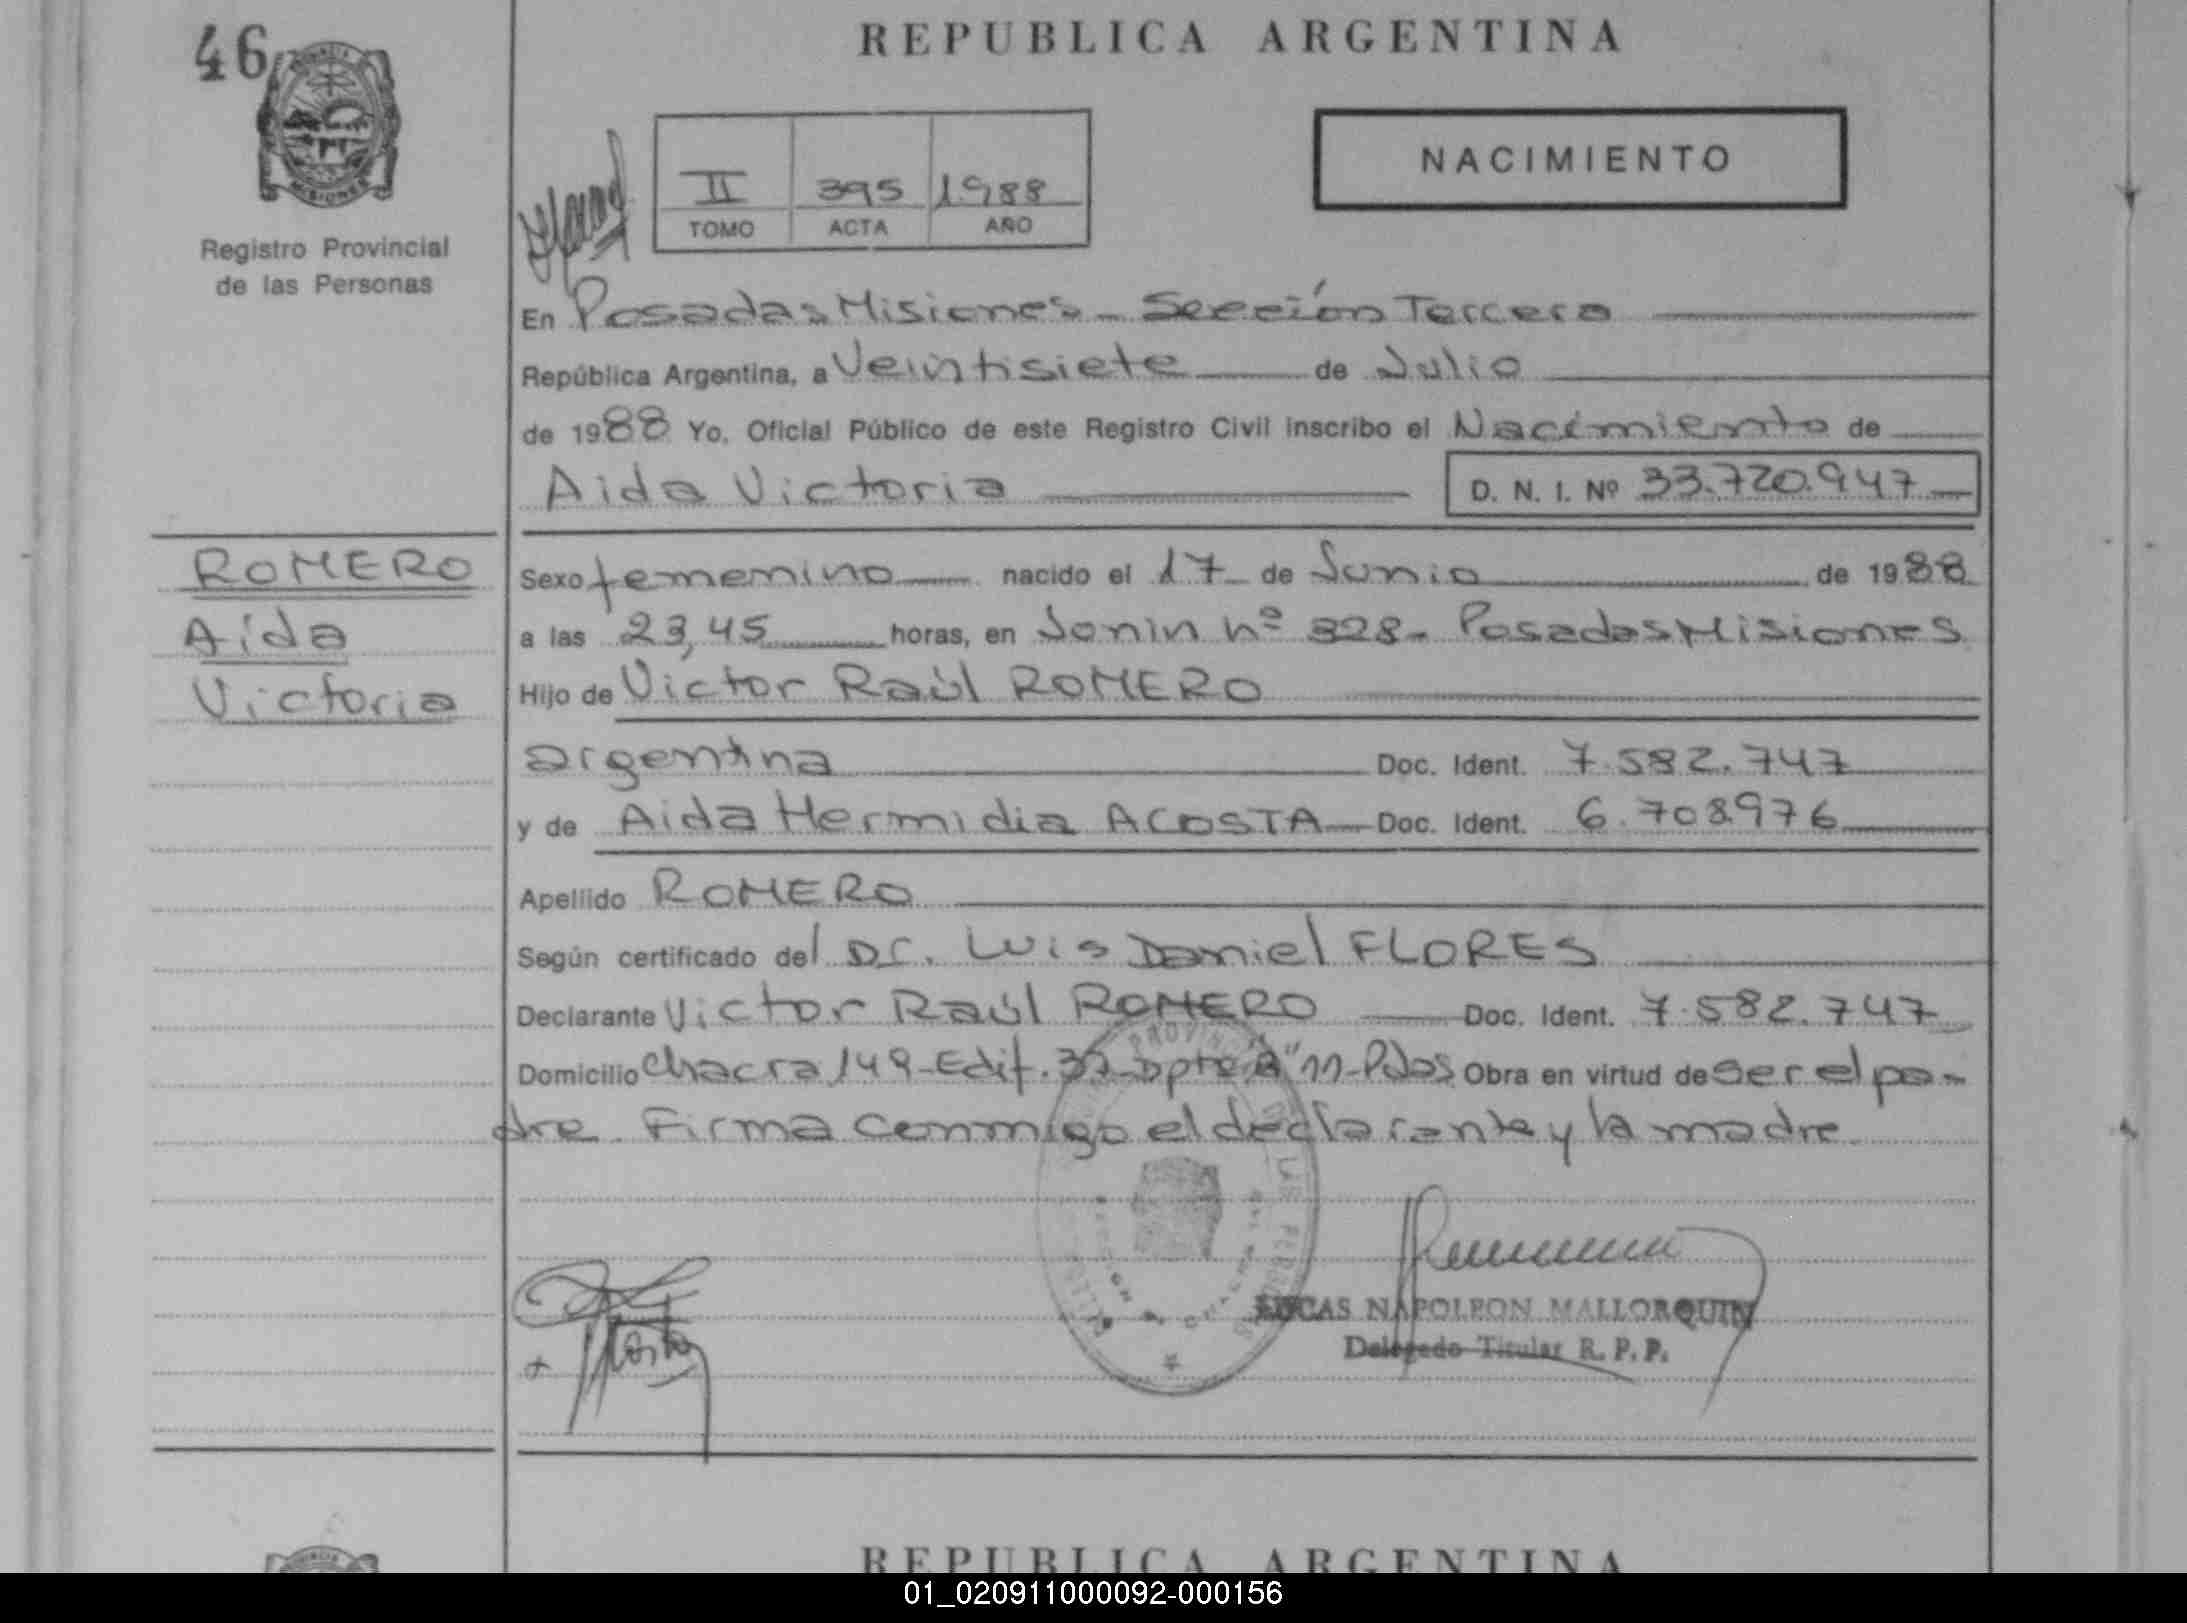 REPUBLICA ARGENTINA
46
NACIMIENTO
II 395 1988
TOMO ACTA AÑO
Registro Provincial
de las Personas
En Posadas Misiones - Sección Tercera
República Argentina, a Veintisiete de Julio
de 1988 Yo, Oficial Público de este Registro Civil inscribo el Nacimiento de
Aida Victoria D. N. I. Nº 33.720.947
ROMERO
Aida
Victoria
Sexo femenino nacido el 17 de Junio de 1988
a las 23,45 horas, en Junin nº 328- Posadas Misiones
Hijo de Victor Raúl ROMERO
argentina Doc. Ident. 7.582.747
y de Aida Hermidia ACOSTA Doc. Ident. 6.708.976
Apellido ROMERO
Según certificado del Dr. Luis Daniel FLORES
Declarante Victor Raúl ROMERO Doc. Ident. 7.582.747
Domicilio Chacra 149-Edif. 37-Dpto "11-Pdas Obra en virtud de ser el pa-
dre. Firma conmigo el declarante y la madre.
LUCAS NAPOLEON MALLORQUIN
Delegado Titular R. P. P.
REPUBLICA ARGENTINA
01_020911000092-000156